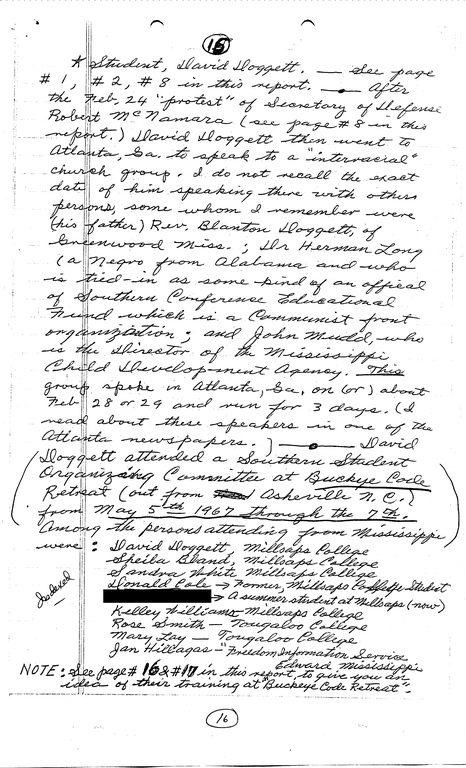 15
* Student, David Doggett. — See page
# 1, # 2, # 8 in this report. — After
the Feb. 24 "protest" of Secretary of Defense
Robert McNamara (see page # 8 in this
report.) David Doggett then went to
Atlanta, Ga. to speak to a "interracial"
church group. I do not recall the exact
date of him speaking there with others
persons, some whom I remember were
(his father) Rev. Blanton Doggett, of
Greenwood Miss.; Dr Herman Long
(a Negro from Alabama and who
is tied-in as some kind of an offical
of Southern Conference Educational
Fund which is a Communist front
organization; and John Mudd, who
is the Director of the Mississippi
Child Development Agency. This
group spoke in Atlanta, Ga. on (or) about
Feb 28 or 29 and run for 3 days. (I
read about these speakers in one of the
Atlanta newspapers.) — David
Doggett attended a Southern Student
Organizing Committee at Buckeye Code
Retreat (out from Asheville N.C.)
from May 5th 1967 through the 7th.
Among the persons attending from Mississippi
were: David Doggett, Millsaps College
Sheila Bland, Millsaps College
Sandra White Millsaps College
Donald Cole - Former Millsaps College Student
→ A summer student at Millsaps (now)
Indexed
Kelley Williams - Millsaps College
Rose Smith - Tougaloo College
Mary Lay - Tougaloo College
Jan Hillegas - "Freedom Information Service
Edward Mississippi
NOTE: See page # 16 & # 17 in this report to give you an
idea of their training at "Buckeye Code Retreat".
16